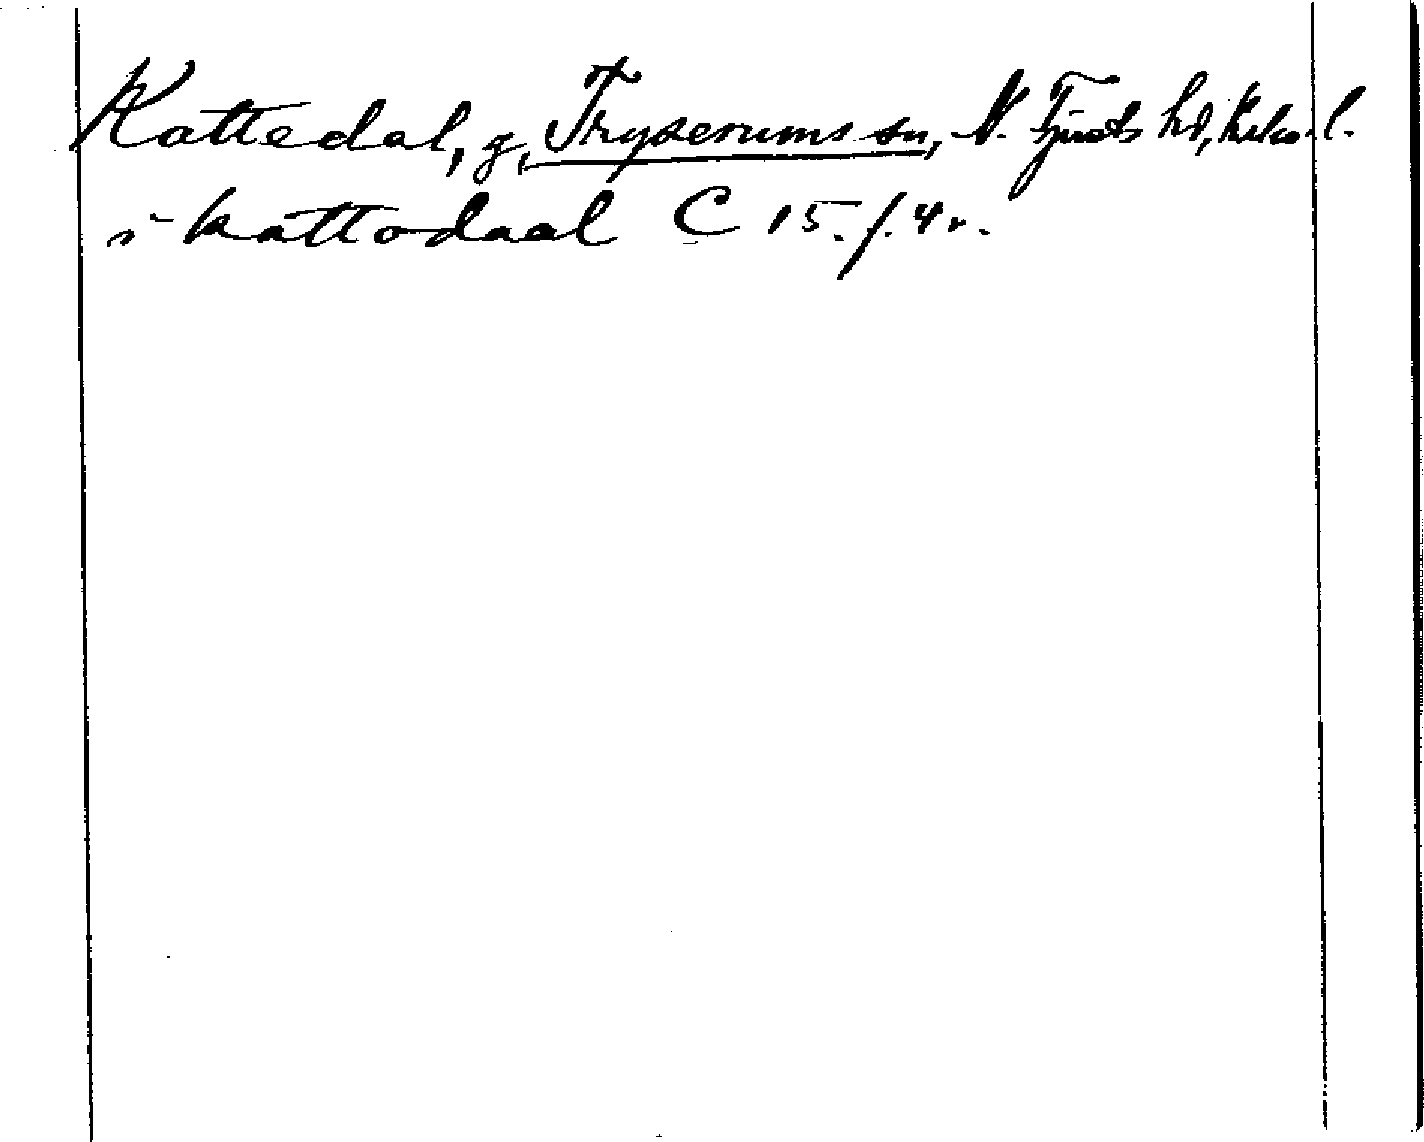 Kattedal, g, Tryserums sn, N. Tjusts hd, Kalm. l.
i kattodaal C 15. f. 4 r.